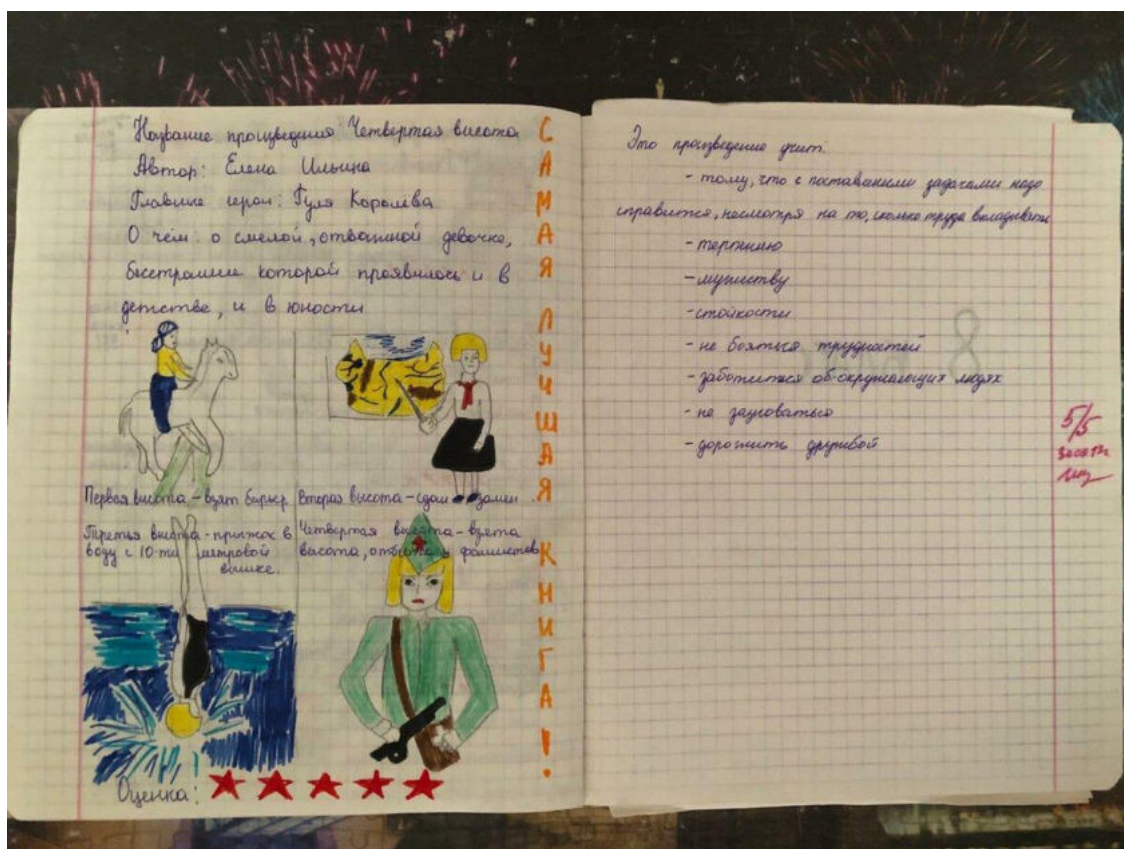 Название произведения: Четвертая высота
Автор: Елена Ильина
Главные герои: Гуля Королёва
О чём: о смелой, отважной девочке,
бесстрашие которой проявилось и в
детстве, и в юности
Первая высота - взят барьер
Вторая высота - сдан экзамен
Третья высота - прыжок в
воду с 10-ти метровой
вышке.
Четвертая высота - взята
высота, у фашистов
Оценка:
САМАЯ ЛУЧШАЯ КНИГА!
Это произведение учит:
- тому, что с поставаными задачами надо
справится, несмотря на то, сколько труда вкладывать
- терпению
- мужеству
- стойкости
- не бояться трудностей
- заботиться об окружающих людях
- не зазноваться
- дорожить дружбой
5/5